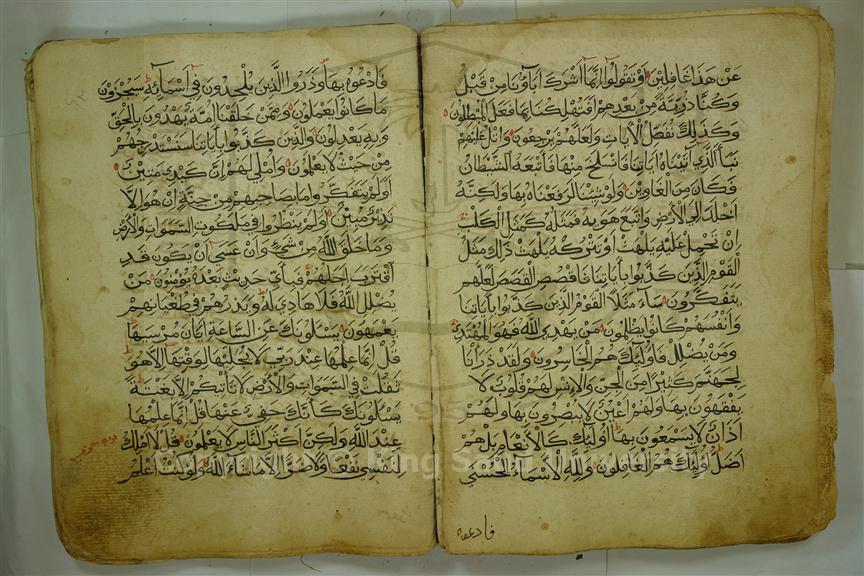 عن هذا غافلين او تقولوا انما اشرك اباؤنا من قبل
وكنا ذرية من بعدهم افتهلكنا بما فعل المبطلون
وكذلك نفصل الايات ولعلهم يرجعون واتل عليهم
نبأ الذي اتيناه اياتنا فانسلخ منها فاتبعه الشيطان
فكان من الغاوين ولو شئنا لرفعناه بها ولكنه
اخلد الى الارض واتبع هويه فمثله كمثل الكلب
ان تحمل عليه يلهث او تتركه يلهث ذلك مثل
القوم الذين كذبوا باياتنا فاقصص القصص لعلهم
يتفكرون ساء مثلا القوم الذين كذبوا باياتنا
وانفسهم كانوا يظلمون من يهدي الله فهو المهتدي
ومن يضلل فاولئك هم الخاسرون ولقد ذرأنا
لجهنم كثيرا من الجن والانس لهم قلوب لا
يفقهون بها ولهم اعين لا يبصرون بها ولهم
اذان لا يسمعون بها اولئك كالانعام بل هم
اضل اولئك هم الغافلون ولله الاسماء الحسنى
فادعوه
فادعوه بها وذروا الذين يلحدون في اسمائه سيجزون
ما كانوا يعملون وممن خلقنا امة يهدون بالحق
وبه يعدلون والذين كذبوا باياتنا سنستدرجهم
من حيث لا يعلمون واملي لهم ان كيدي متين
اولم يتفكروا ما بصاحبهم من جنة ان هو الا
نذير مبين اولم ينظروا في ملكوت السموات والارض
وما خلق الله من شيء وان عسى ان يكون قد
اقترب اجلهم فباي حديث بعده يؤمنون من
يضلل الله فلا هادي له ويذرهم في طغيانهم
يعمهون يسئلونك عن الساعة ايان مرسيها
قل انما علمها عند ربي لا يجليها لوقتها الا هو
ثقلت في السموات والارض لا تأتيكم الا بغتة
يسئلونك كانك حفي عنها قل انما علمها
عند الله ولكن اكثر الناس لا يعلمون قل لا املك
لنفسي نفعا ولا ضرا الا ما شاء الله ولو كنت اعلم